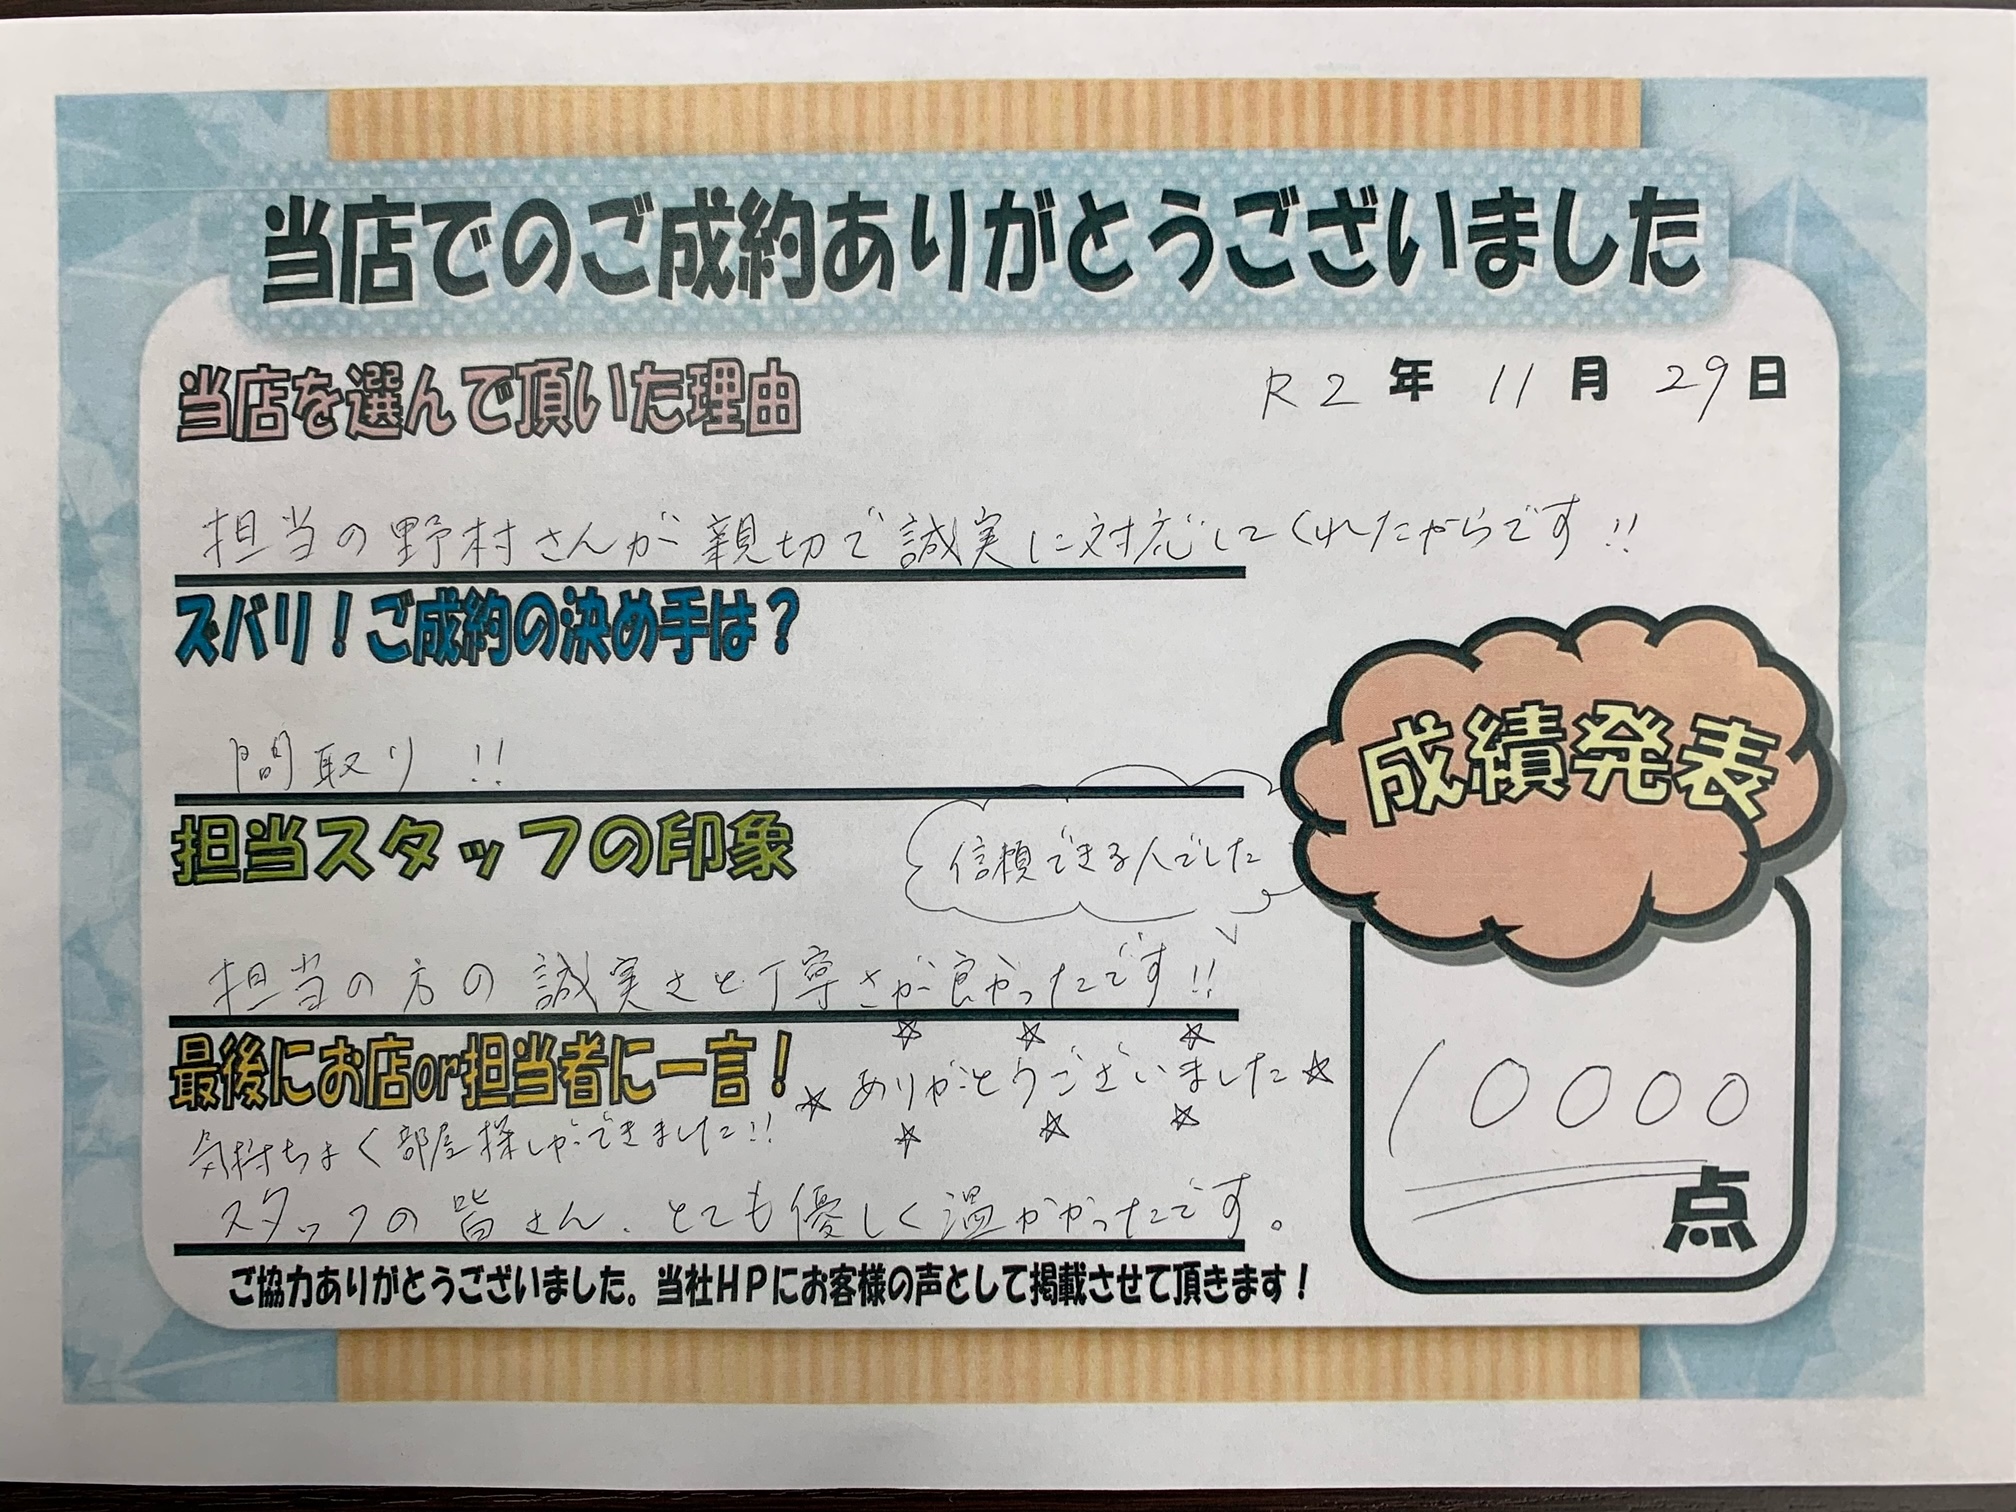 当店でのご成約ありがとうございました
当店を選んで頂いた理由
R2年 11月 29日
担当の野村さんが親切で誠実に対応してくれたからです!!
ズバリ!ご成約の決め手は?
間取り !!
成績発表
担当スタッフの印象
信頼できる人でした
担当の方の誠実さと丁寧さが良かったです!!
最後にお店or担当者に一言!
☆ ☆ ☆
☆ ありがとうございました ☆
☆ ☆ ☆
気持ちよく部屋探しができました!!
スタッフの皆さん、とても優しく温かかったです。
10000
点
ご協力ありがとうございました。当社HPにお客様の声として掲載させて頂きます!